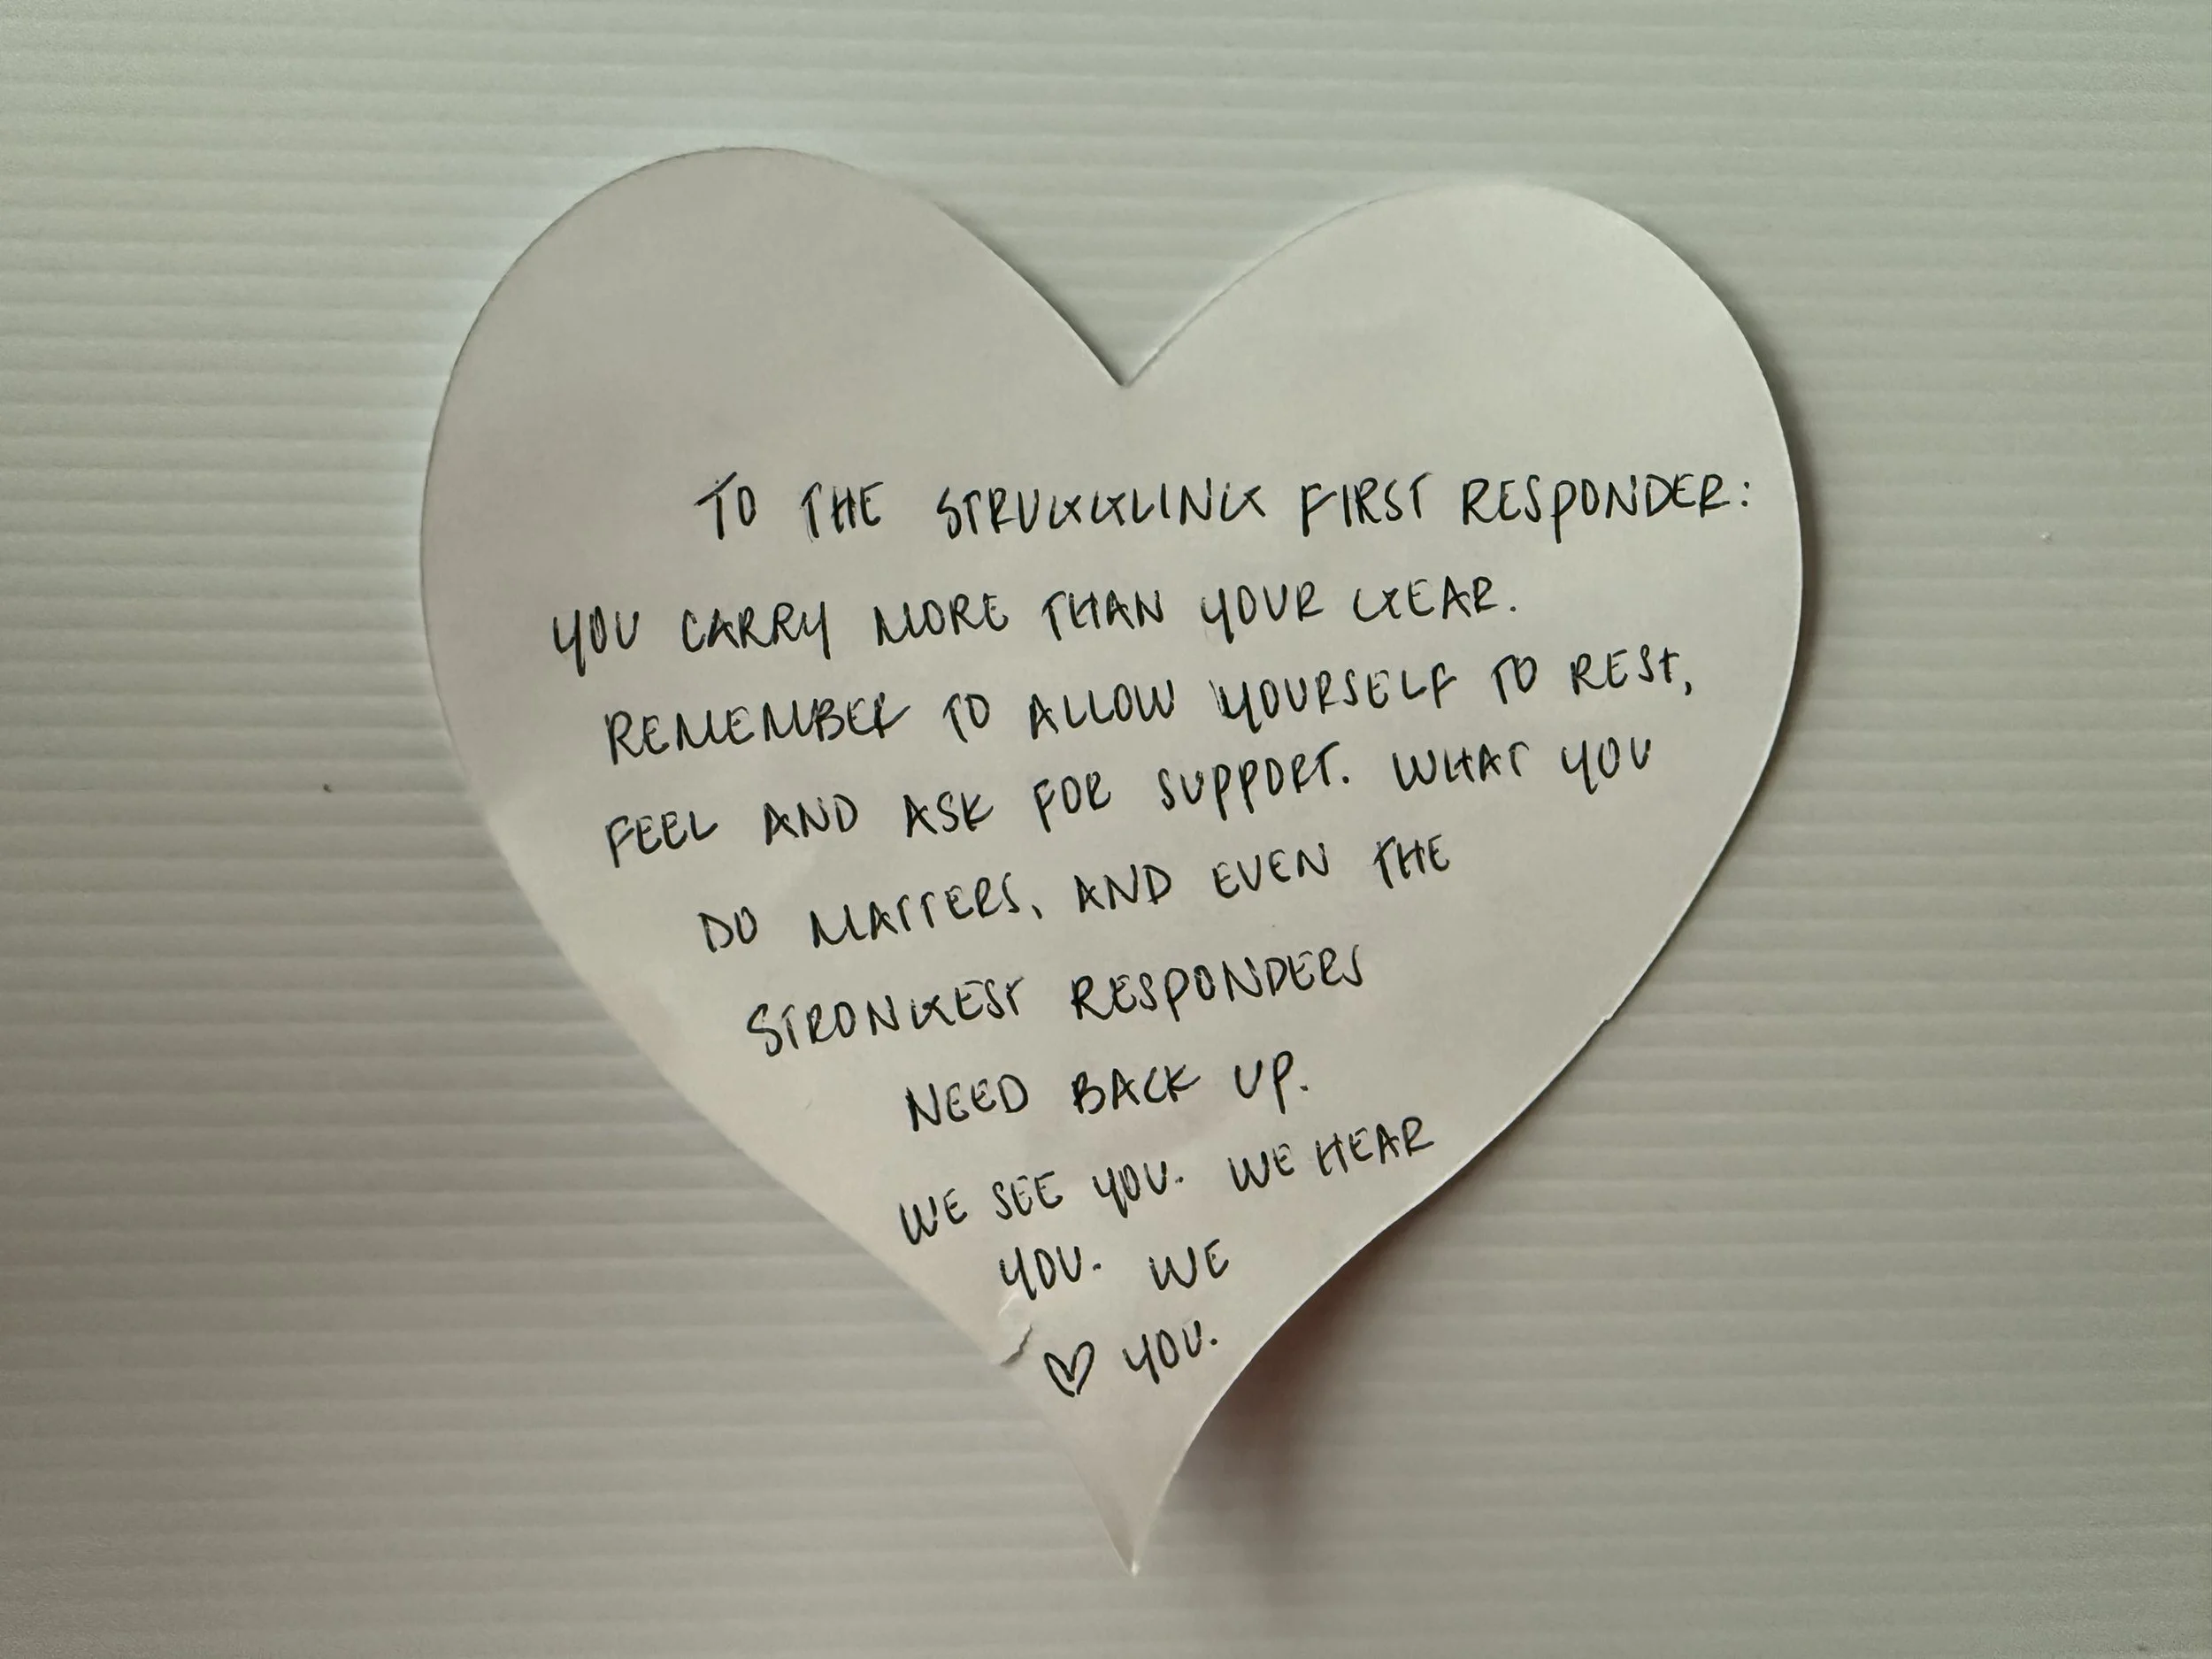 TO THE STRUGGLING FIRST RESPONDER:
YOU CARRY MORE THAN YOUR GEAR.
REMEMBER TO ALLOW YOURSELF TO REST,
FEEL AND ASK FOR SUPPORT. WHAT YOU
DO MATTERS, AND EVEN THE
STRONGEST RESPONDERS
NEED BACK UP.
WE SEE YOU. WE HEAR
YOU. WE
♡ YOU.